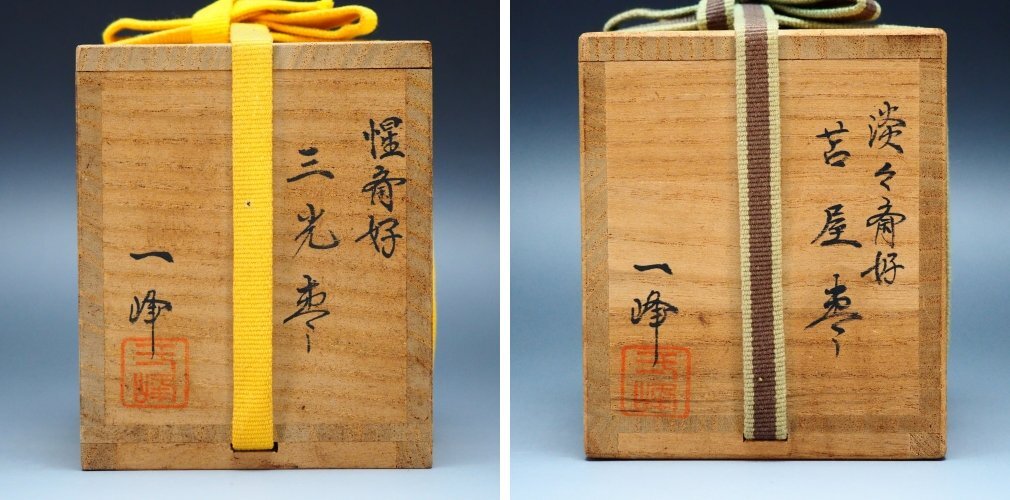 惺斎好
三光棗
一峰
淡々斎好
苫屋棗
一峰